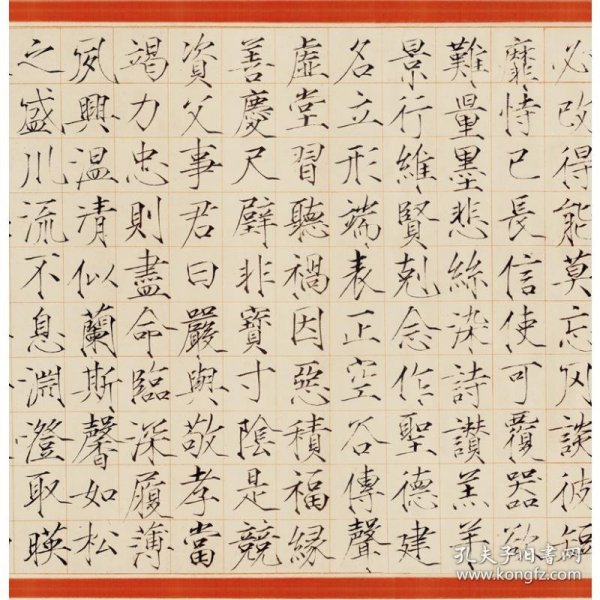 必改得能莫忘罔談彼短
靡恃己長信使可覆器欲
難量墨悲絲染詩讚羔羊
景行維賢剋念作聖德建
名立形端表正空谷傳聲
虛堂習聽禍因惡積福緣
善慶尺璧非寶寸陰是競
資父事君曰嚴與敬孝當
竭力忠則盡命臨深履薄
夙興温清似蘭斯馨如松
之盛川流不息淵澄取暎
孔夫子旧书网
www.kongfz.com